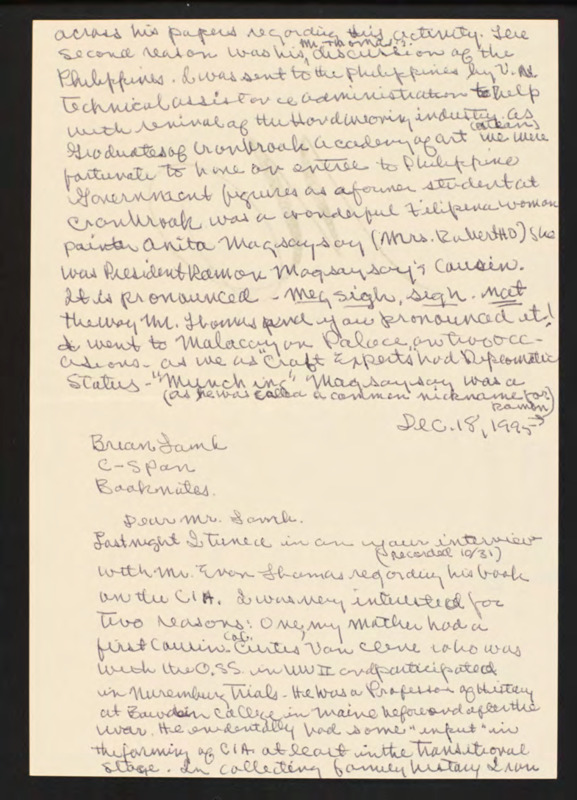 across his papers regarding this activity. The
second reason was his, Mr. Thomas's, discussion of the
Philippines. I was sent to the Philippines by U.N.
Technical assistance administration to help
with revival of the Handweaving industry. As
Graduates of Cranbrook academy of art (ceteans) we were
fortunate to have an entree to Philippine
Government figures as a former student at
Cranbrook was a wonderful Filipina woman
painter Anita Magsaysay (Mrs. Robert HO) She
was President Ramon Magsaysay's Cousin.
It is pronounced - Mag sigh, sigh - not
the way Mr. Thomas and you pronounced it!
I went to Malacayan Palace on two occ-
asions - as we as "Craft Experts" had Diplomatic
Status - "Munching" Magsaysay was a
(as he was called a common nickname for
Ramon)
Dec. 18, 1995
Brian Lamb
C-Span
Booknotes.
Dear Mr. Lamb.
Last night I tuned in on your interview
(recorded 10/31)
with Mr. Evan Thomas regarding his book
on the CIA. I was very interested for
two reasons: One, my mother had a
first Cousin Col. Curtis Van Cleve who was
with the O.SS. in WW II and participated
in Nuremburg Trials. He was a Professor of History
at Bowdoin College in Maine before and after the
War. He evidentally had some "input" in
the forming of CIA at least in the transitional
stage. In collecting family history I ran